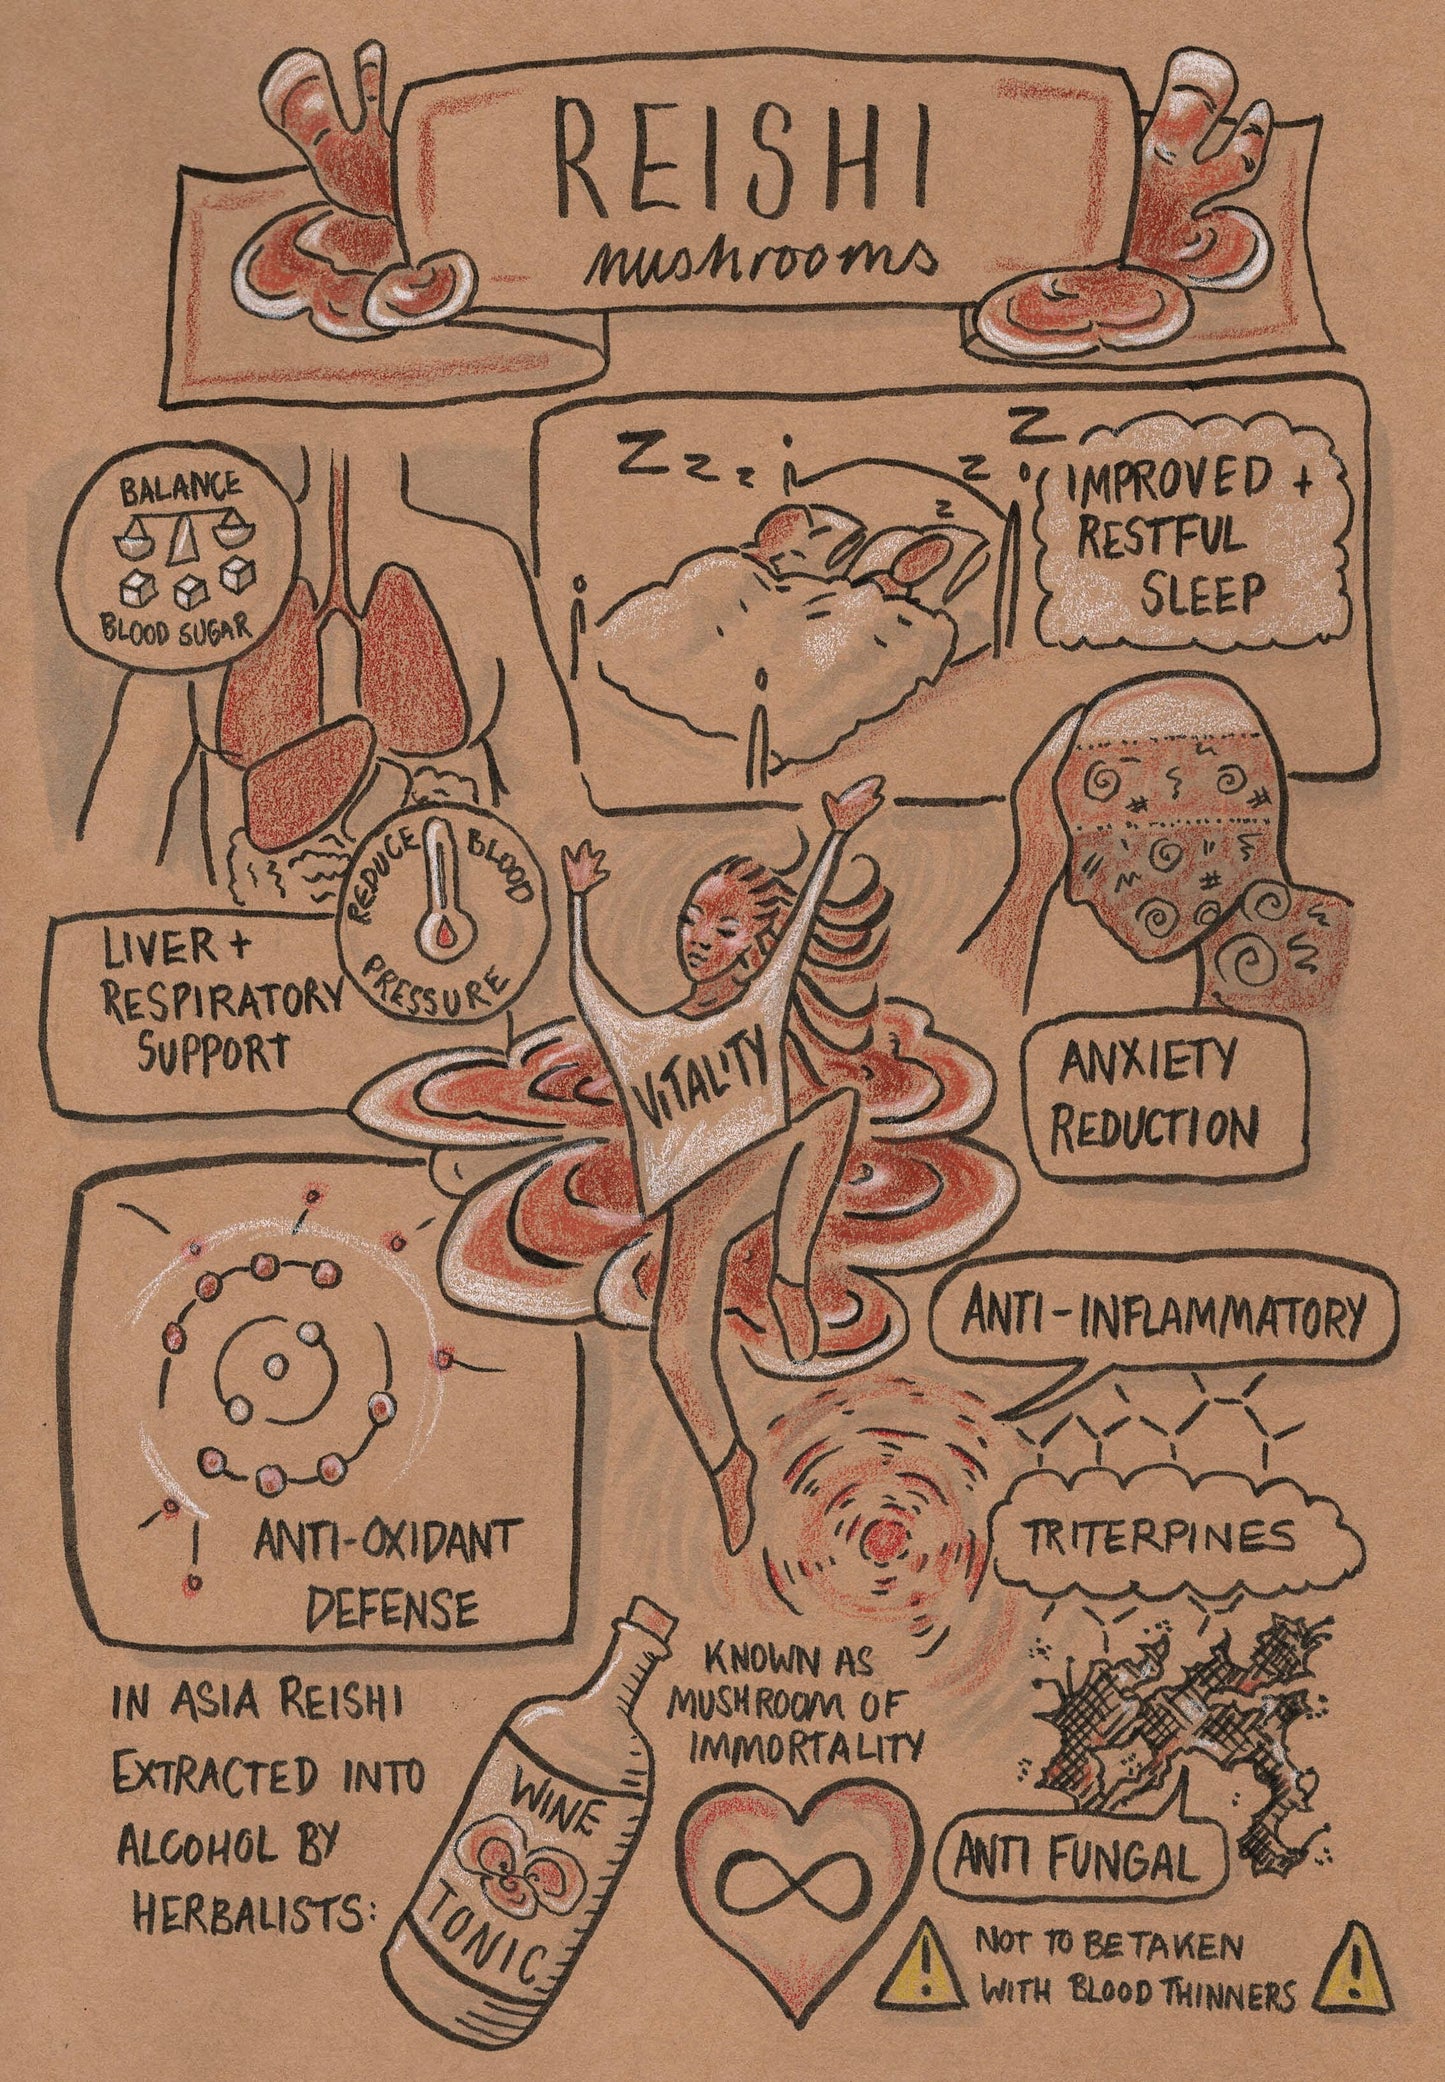 REISHI
mushrooms
BALANCE
BLOOD SUGAR
Z z z
z z Z
IMPROVED +
RESTFUL
SLEEP
REDUCE BLOOD
PRESSURE
LIVER +
RESPIRATORY
SUPPORT
VITALITY
ANXIETY
REDUCTION
ANTI-INFLAMMATORY
TRITERPINES
ANTI-OXIDANT
DEFENSE
IN ASIA REISHI
EXTRACTED INTO
ALCOHOL BY
HERBALISTS:
WINE
TONIC
KNOWN AS
MUSHROOM OF
IMMORTALITY
∞
ANTI FUNGAL
! NOT TO BE TAKEN !
WITH BLOOD THINNERS